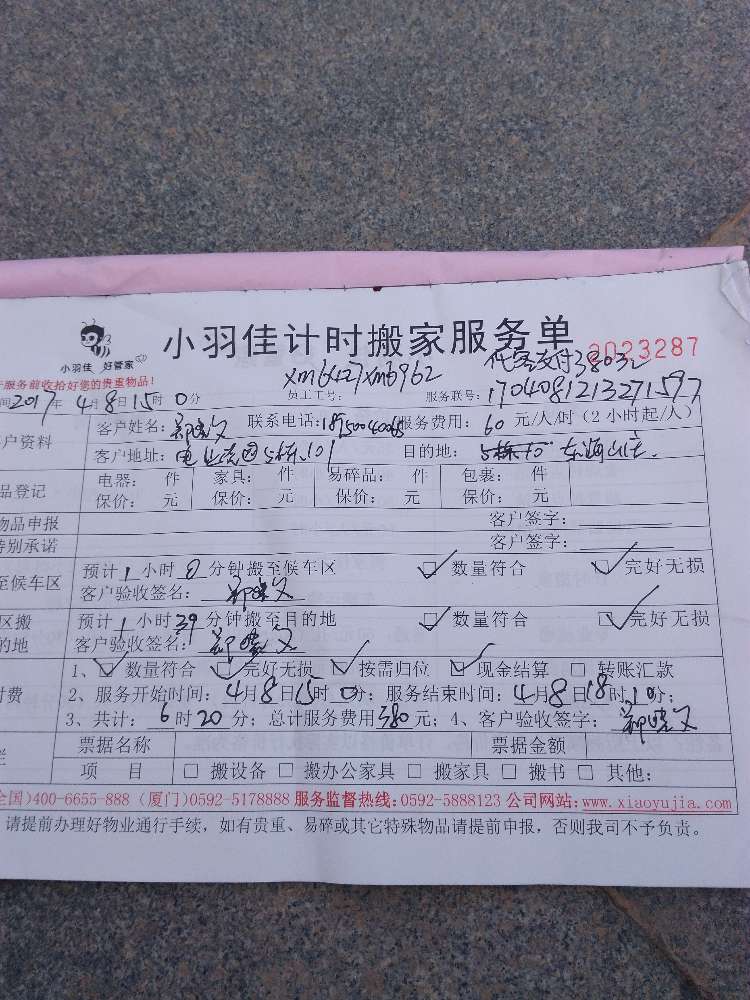 小羽佳计时搬家服务单
小羽佳 好管家
2023287
服务前收拾好您的贵重物品!
xm6427xm6962
代客支付380元
间2017年4月8日15时0分 员工工号: 服务联号:1704081213271597
户资料 客户姓名: 联系电话: 服务费用:60元/人/时(2小时起/人)
客户地址: 5栋101 目的地: 东海山庄
品登记 电器: 件 家具: 件 易碎品: 件 包裹: 件
保价: 元 保价: 元 保价: 元 保价: 元
物品申报 客户签字:
特别承诺 客户签字:
至候车区 预计1小时0分钟搬至候车区 ☑数量符合 ☑完好无损
客户验收签名:
区搬 预计1小时39分钟搬至目的地 ☑数量符合 ☑完好无损
的地 客户验收签名:
1、☑数量符合 ☑完好无损 ☑按需归位 ☑现金结算 □转账汇款
付费 2、服务开始时间:4月8日15时0分;服务结束时间:4月8日18时10分;
3、共计:6时20分;总计服务费用380元;4、客户验收签字:
栏 票据名称 票据金额
项 目 □搬设备 □搬办公家具 □搬家具 □搬书 □其他:
全国)400-6655-888 (厦门)0592-5178888 服务监督热线:0592-5888123 公司网站:www.xiaoyujia.com
请提前办理好物业通行手续,如有贵重、易碎或其它特殊物品请提前申报,否则我司不予负责。